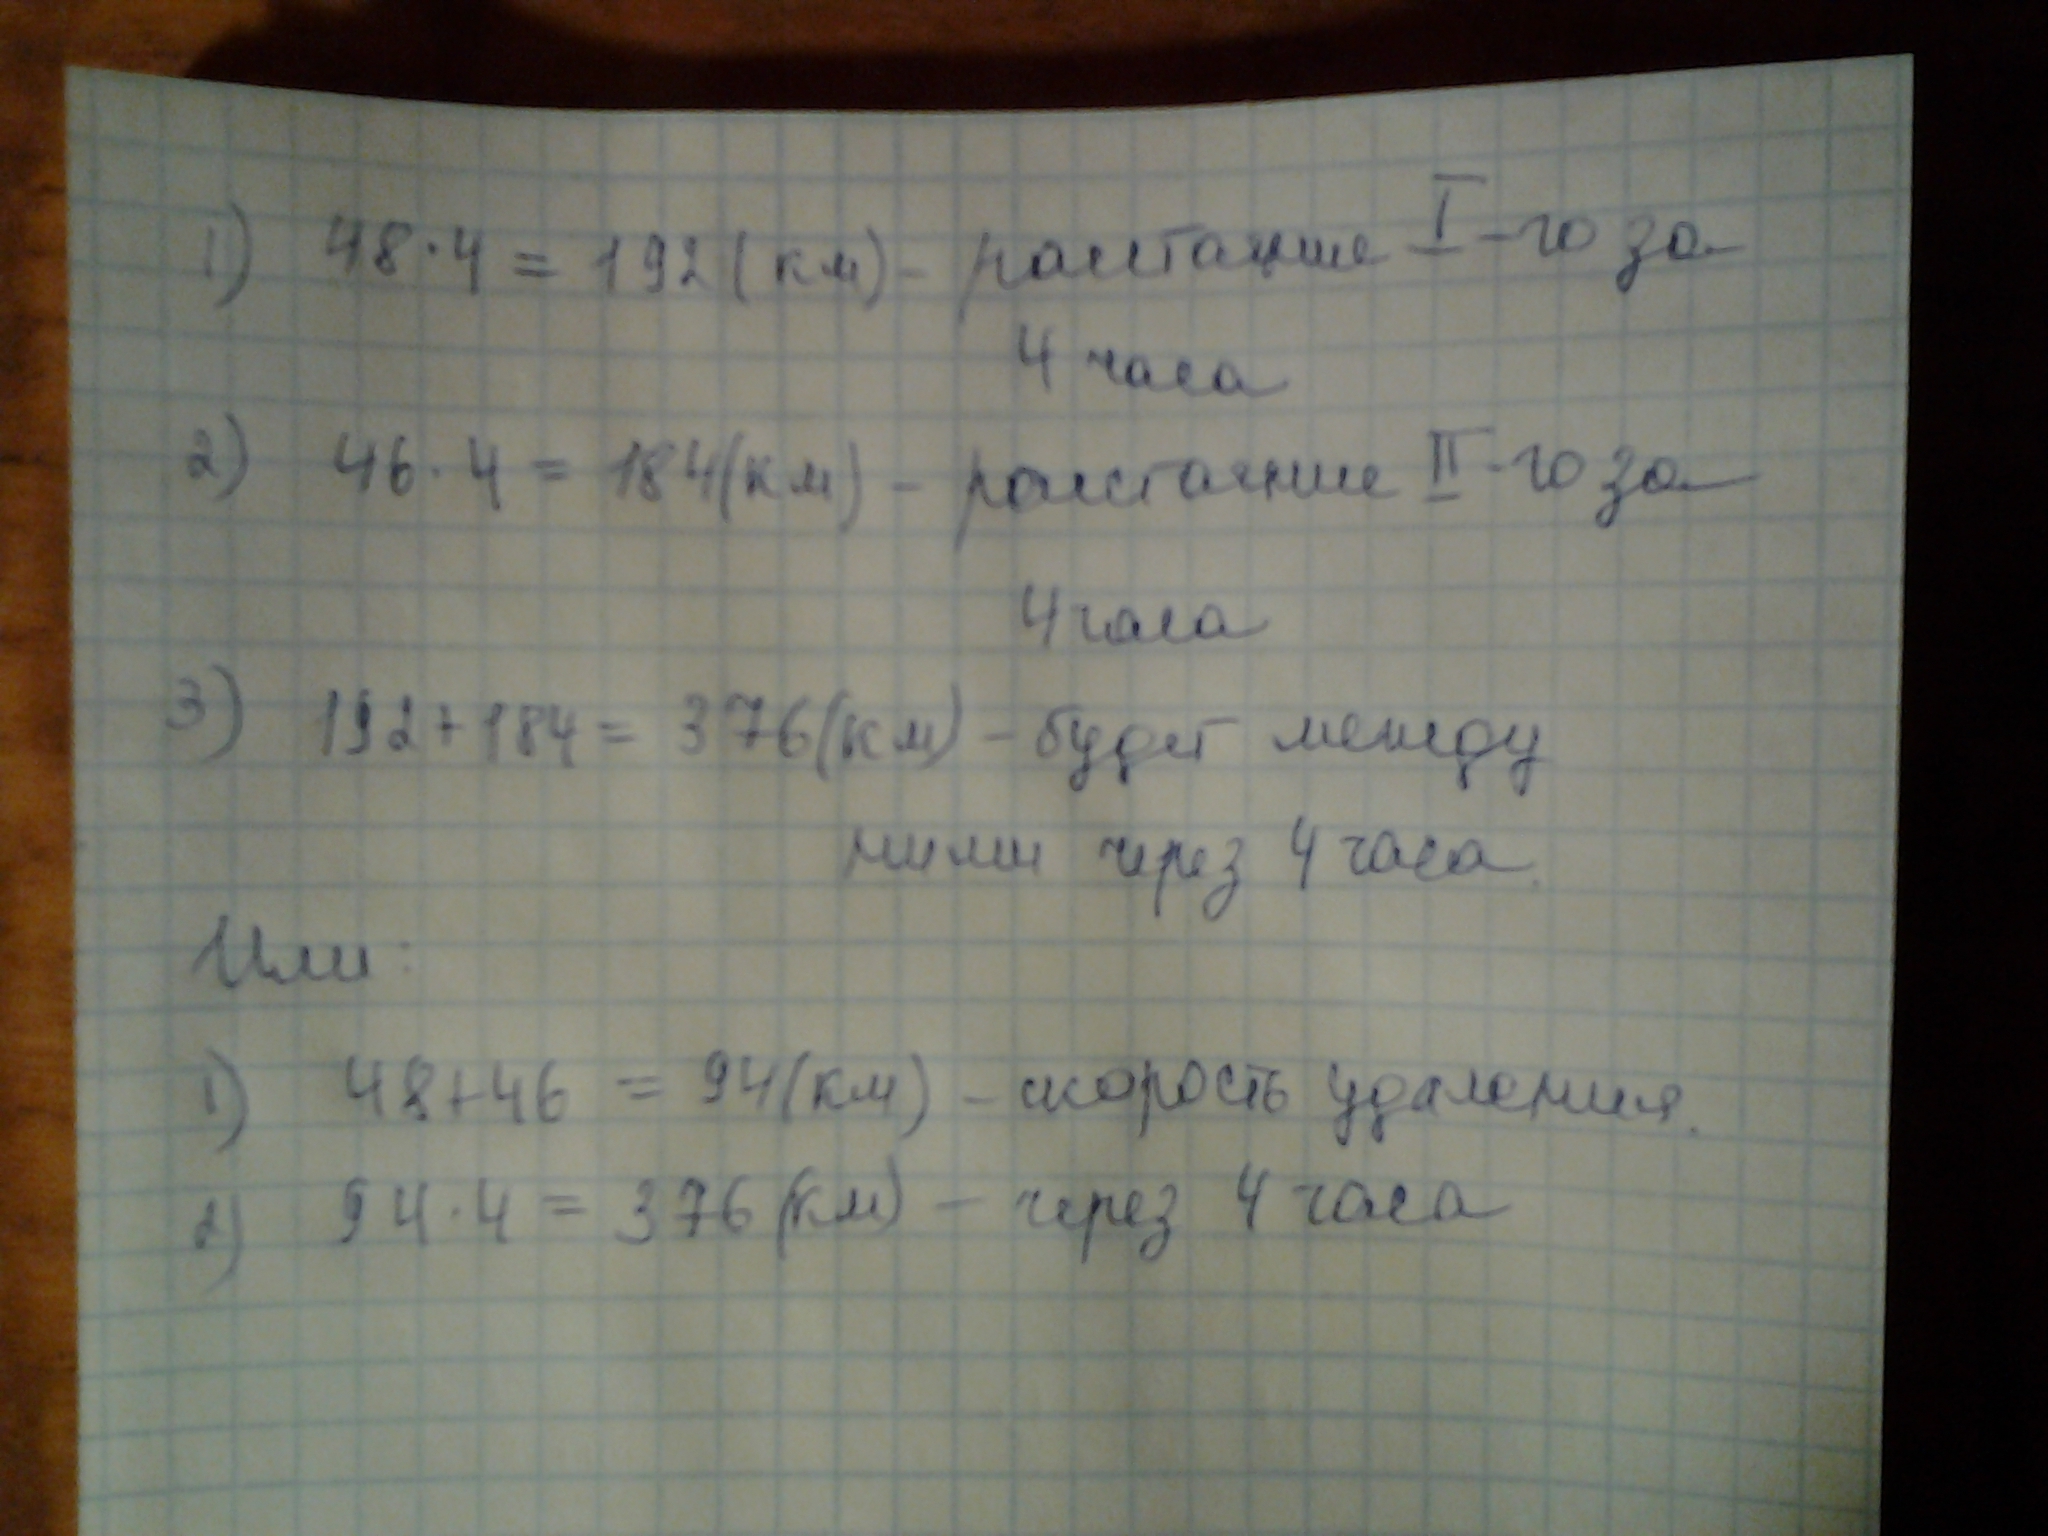 1) 48·4 = 192(км) - расстояние I-го за
4 часа
2) 46·4 = 184(км) - расстояние II-го за
4 часа
3) 192+184 = 376(км) - будет между
ними через 4 часа.
Или:
1) 48+46 = 94(км) - скорость удаления.
2) 94·4 = 376(км) - через 4 часа